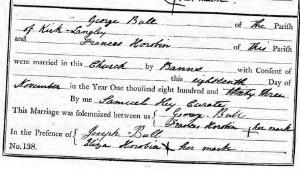 George Bull of the Parish
of Kirk-Langley
and Frances Horobin of this Parish
were married in this Church by Banns with Consent of
this eighteenth Day of
November in the Year One thousand eight hundred and thirty three
By me Samuel Hey Curate
This Marriage was solemnized between us George Bull
Frances Horobin X her mark
In the Presence of Joseph Bull
Eliza Horobin X her mark
No. 138.